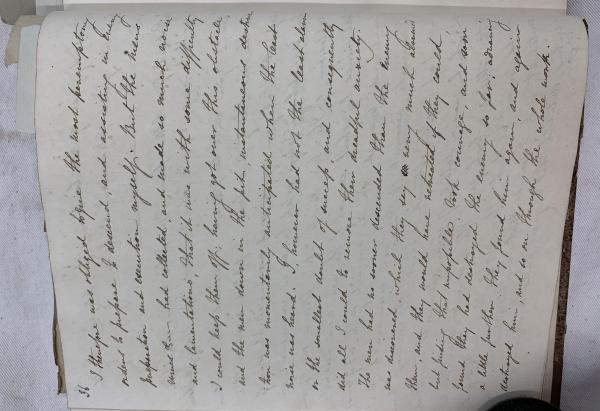 36
I therefore was obliged to give the most peremptory
orders to prepare to descend and assisting in every
preparation and exertion myself. But the men's
had collected, and made so much noise
and lamentations, that it was with some difficulty
I could keep them off: having got over this obstacle
and the men down in the pit, instantaneous destruc
tion was momentarily anticipated when the least
noise was heard. I, however had not the least dem
or the smallest doubt of success, and consequently
did all I could to remove their dreadful anxiety.
The men had no sooner descended than the enemy
was discovered, which they say very much alarmed
them and they would have retreated if they could
but finding that impossible took courage, and soon
found they had destroyed the enemy so far; advancing
a little farther they found him again, and again
destroyed him; and so on through the whole work.